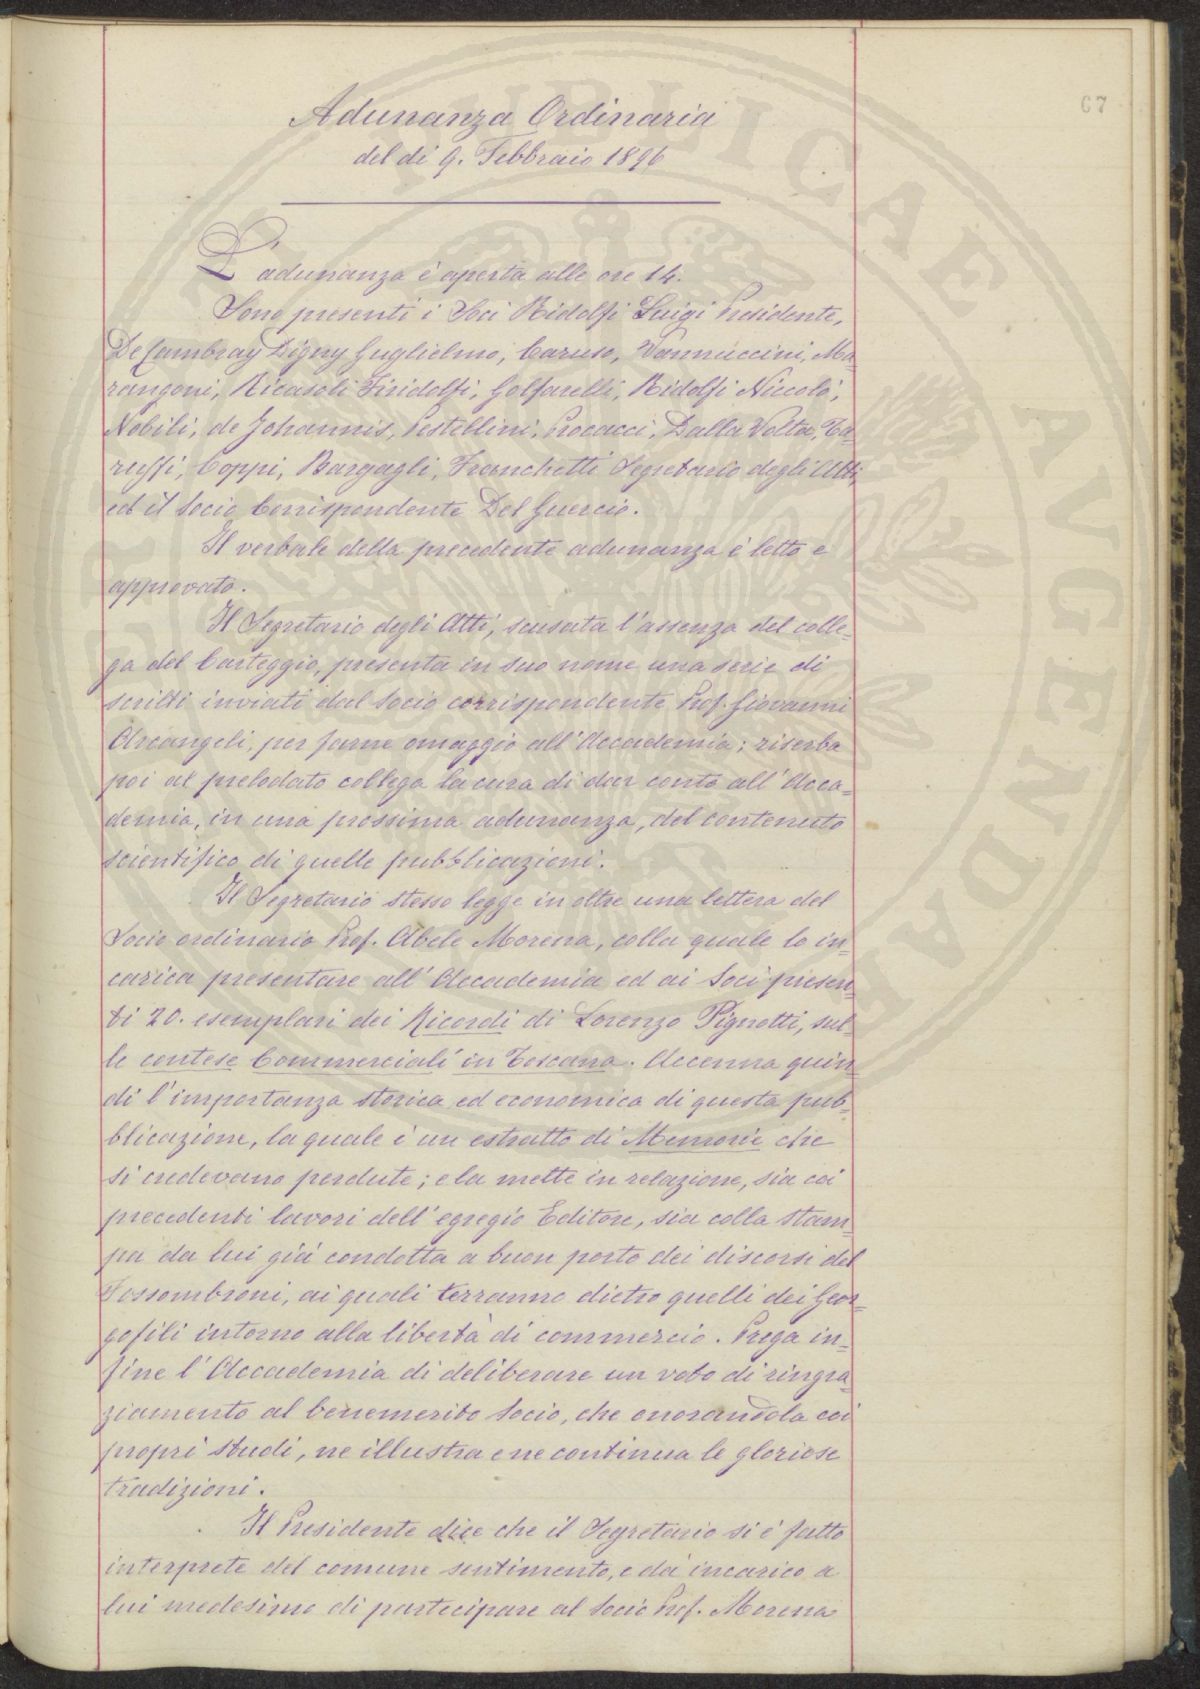 67
Adunanza Ordinaria
del dì 9. Febbraio 1896
L'adunanza è aperta alle ore 14.
Sono presenti i Soci Ridolfi Luigi Presidente,
De Cambray Digny Guglielmo, Caruso, Vannuccini, Ma=
rangoni, Ricasoli Firidolfi, Golfarelli, Ridolfi Niccolò,
Nobili, de Johannis, Pestellini, Procacci, Dalla Volta, Ta=
ruffi, Coppi, Bargagli, Franchetti Segretario degli Atti,
ed il Socio Corrispondente Del Guercio.
Il verbale della precedente adunanza è letto e
approvato.
Il Segretario degli Atti, scusata l'assenza del colle=
ga del Carteggio, presenta in suo nome una serie di
scritti inviati dal Socio corrispondente Prof. Giovanni
Arcangeli, per farne omaggio all'Accademia; riserba
poi al prelodato collega la cura di dar conto all'Acca=
demia, in una prossima adunanza, del contenuto
scientifico di quelle pubblicazioni.
Il Segretario stesso legge in oltre una lettera del
Socio ordinario Prof. Abele Morena, colla quale lo in=
carica presentare all'Accademia ed ai Soci presen=
ti 20. esemplari dei Ricordi di Lorenzo Pignotti, sul=
le contese Commerciali in Toscana. Accenna quin=
di l'importanza storica ed economica di questa pub=
blicazione, la quale è un estratto di Memorie che
si credevano perdute; e la mette in relazione, sia coi
precedenti lavori dell'egregio Editore, sia colla stam=
pa da lui già condotta a buon porto dei discorsi del
Fossombroni, ai quali terranno dietro quelli dei Geor=
gofili intorno alla libertà di commercio. Prega in=
fine l'Accademia di deliberare un voto di ringra=
ziamento al benemerito Socio, che onorandola coi
propri studi, ne illustra e ne continua le gloriose
tradizioni.
Il Presidente dice che il Segretario si è fatto
interprete del comune sentimento, e dà incarico a
lui medesimo di partecipare al Socio Prof. Morena